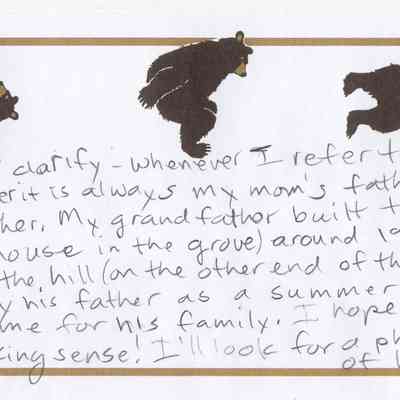 clarify - whenever I refer t
er it is always my mom's fath
her. My grandfathor built t
ouse in the grove) around 19
the, hill (on the other end of th
y his father as a summer
me for his family. I hope
king sense! I'll look for a ph
of